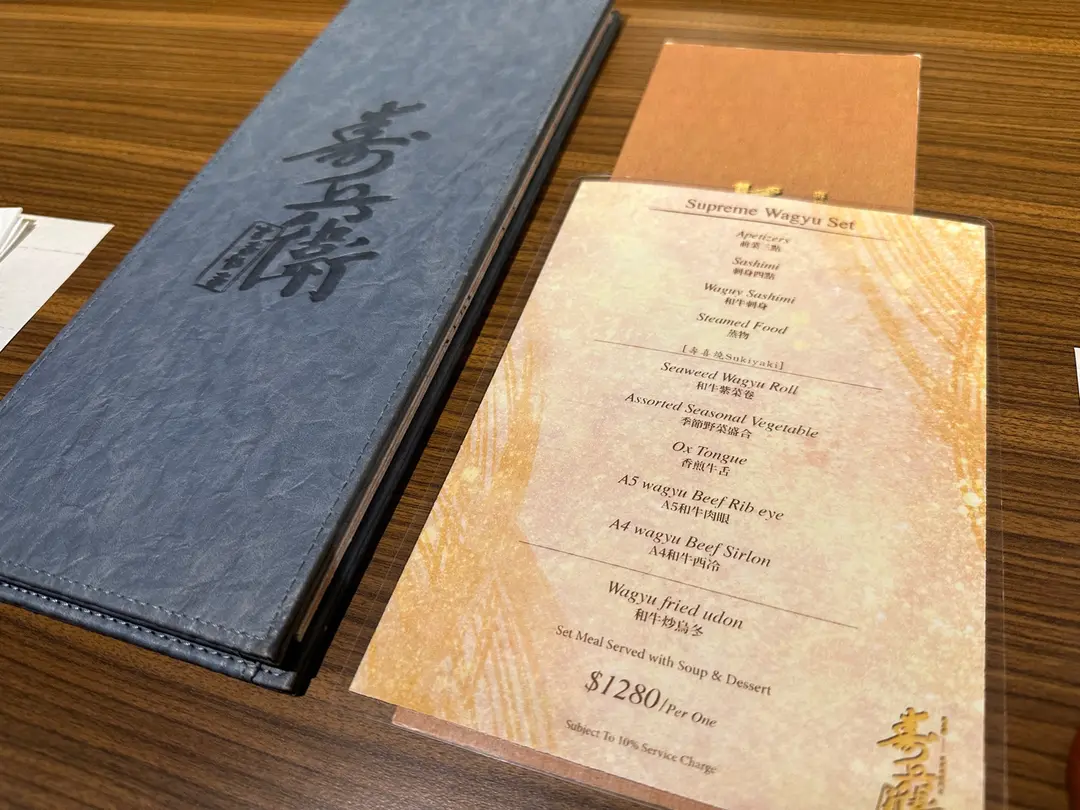 壽兵衛
Supreme Wagyu Set
Apetizers
前菜三點
Sashimi
刺身四點
Waguy Sashimi
和牛刺身
Steamed Food
蒸物
[壽喜燒Sukiyaki]
Seaweed Wagyu Roll
和牛紫菜卷
Assorted Seasonal Vegetable
季節野菜盛合
Ox Tongue
香煎牛舌
A5 wagyu Beef Rib eye
A5和牛肉眼
A4 wagyu Beef Sirlon
A4和牛西冷
Wagyu fried udon
和牛炒烏冬
Set Meal Served with Soup & Dessert
$1280/Per One
Subject To 10% Service Charge
壽兵衛